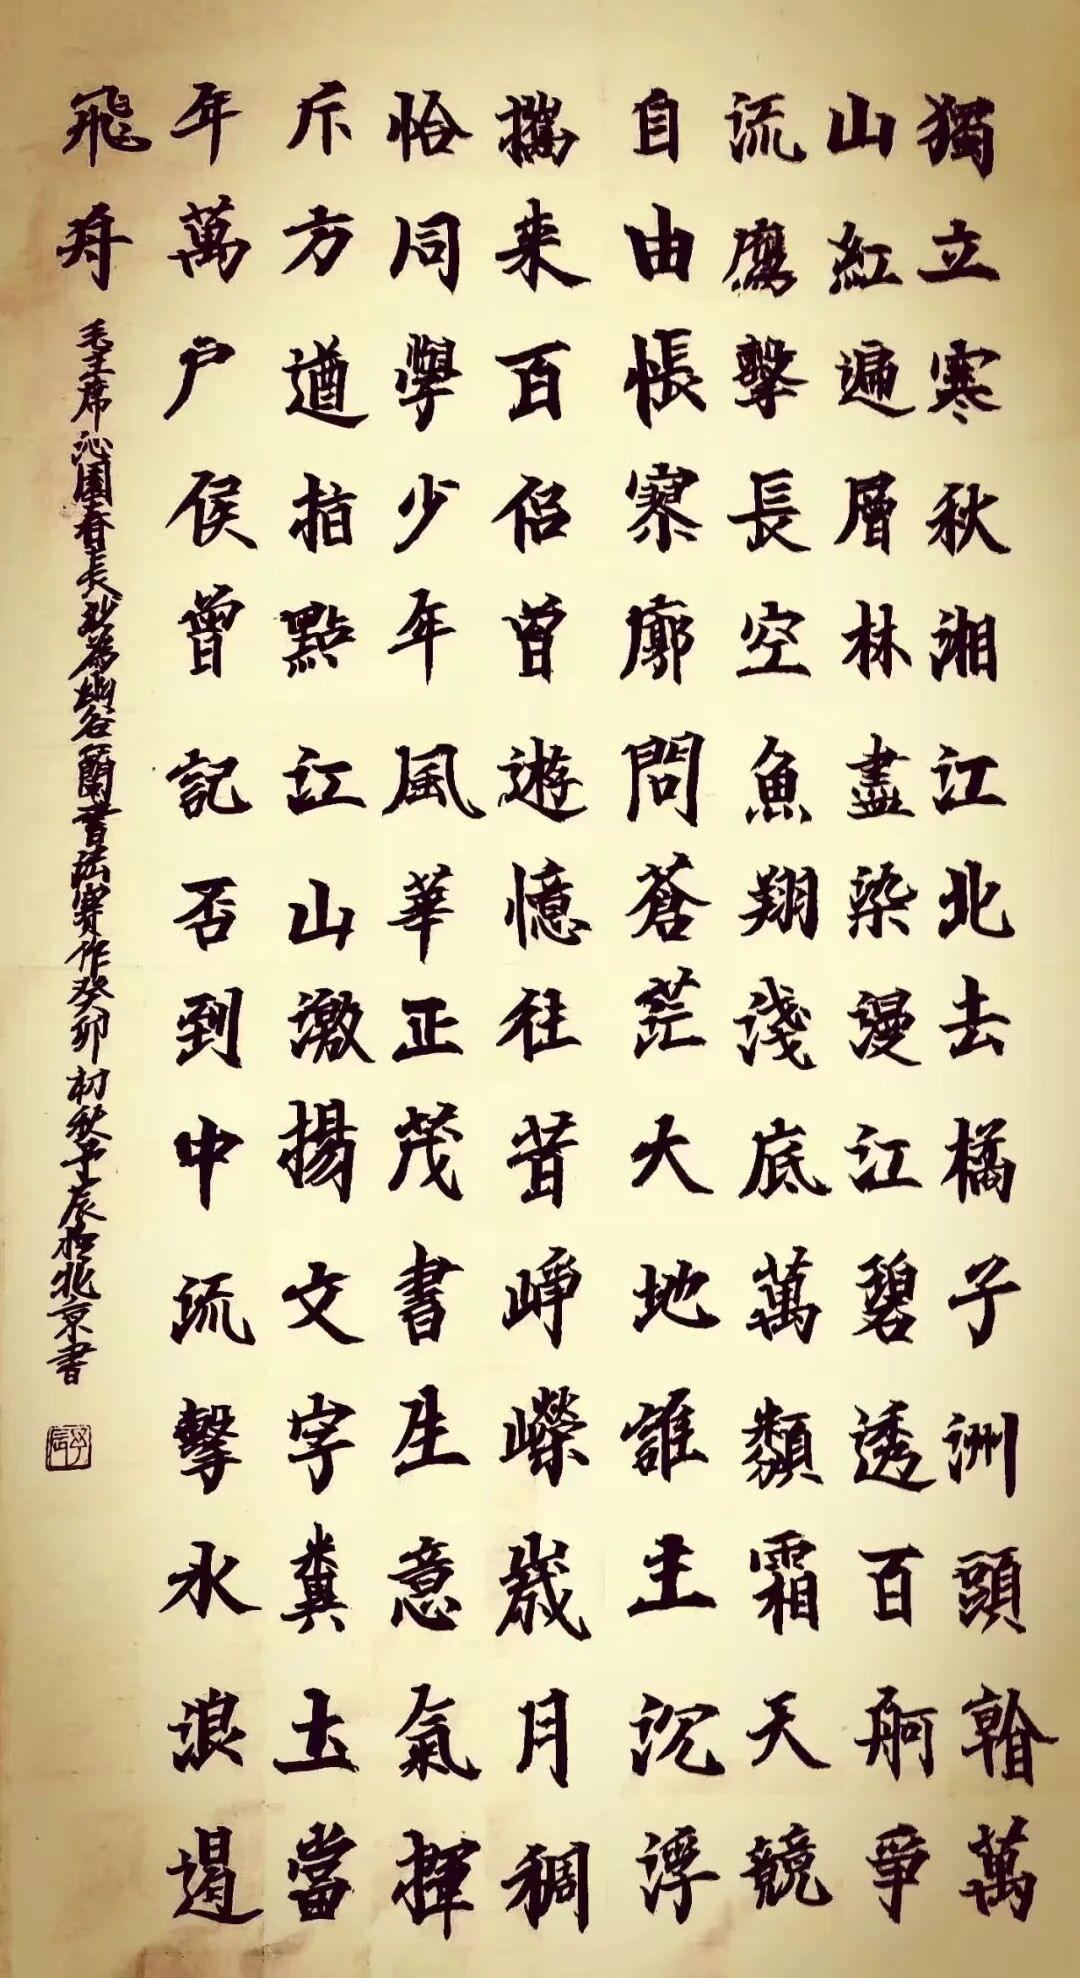 獨立寒秋湘江北去橘子洲頭看萬
山紅遍層林盡染漫江碧透百舸爭
流鷹擊長空魚翔淺底萬類霜天競
自由悵寥廓問蒼茫大地誰主沉浮
攜来百侶曾遊憶往昔崢嶸歲月稠
恰同學少年風華正茂書生意氣揮
斥方遒指點江山激揚文字糞土當
年萬戶侯曾記否到中流擊水浪遏
飛舟
毛主席沁園春長沙為幽谷蘭書法賽作癸卯初秋子辰於北京書